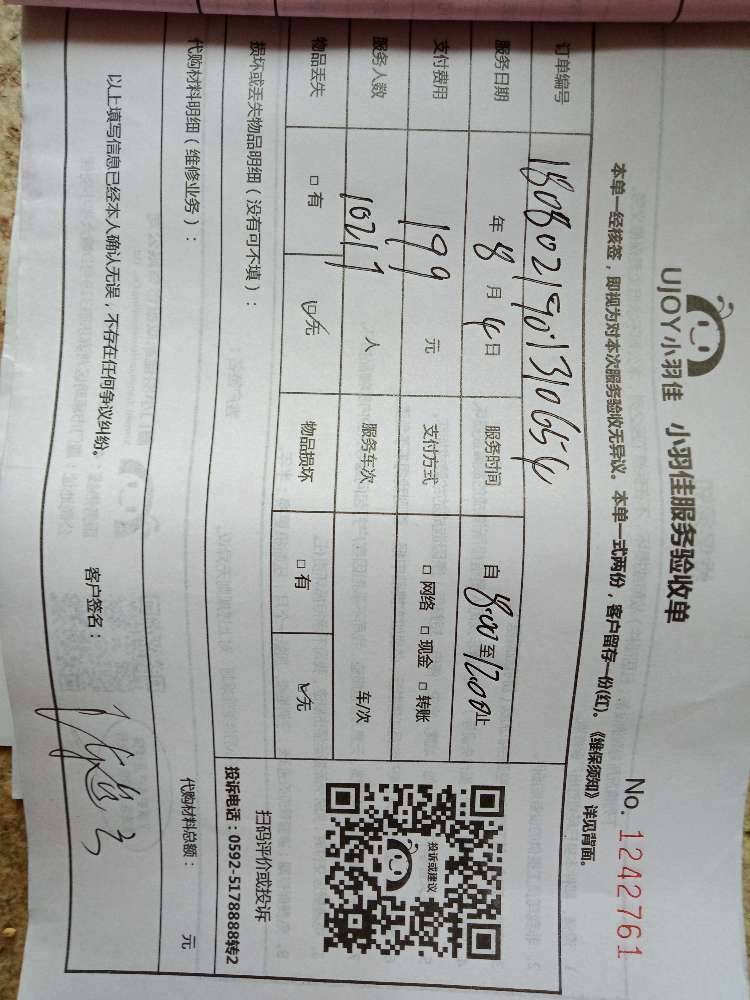 UJOY小羽佳 小羽佳服务验收单
No. 1242761
本单一经核签，即视为对本次服务验收无异议。本单一式两份，客户留存一份(红)。《维保须知》详见背面。
订单编号
服务日期 年 8 月 4 日 服务时间 自 8:00 至 12:00 止
支付费用 199 元 支付方式 □ 网络 □ 现金 □ 转账
服务人数 10217 人 服务车次 车/次
物品丢失 □ 有 □ 无 物品损坏 □ 有 □ 无
投诉或建议
扫码评价或投诉
投诉电话：0592-5178888转2
损坏或丢失物品明细（没有可不填）：
代购材料明细（维修业务）： 代购材料总额： 元
以上填写信息已经本人确认无误，不存在任何争议纠纷。 客户签名：